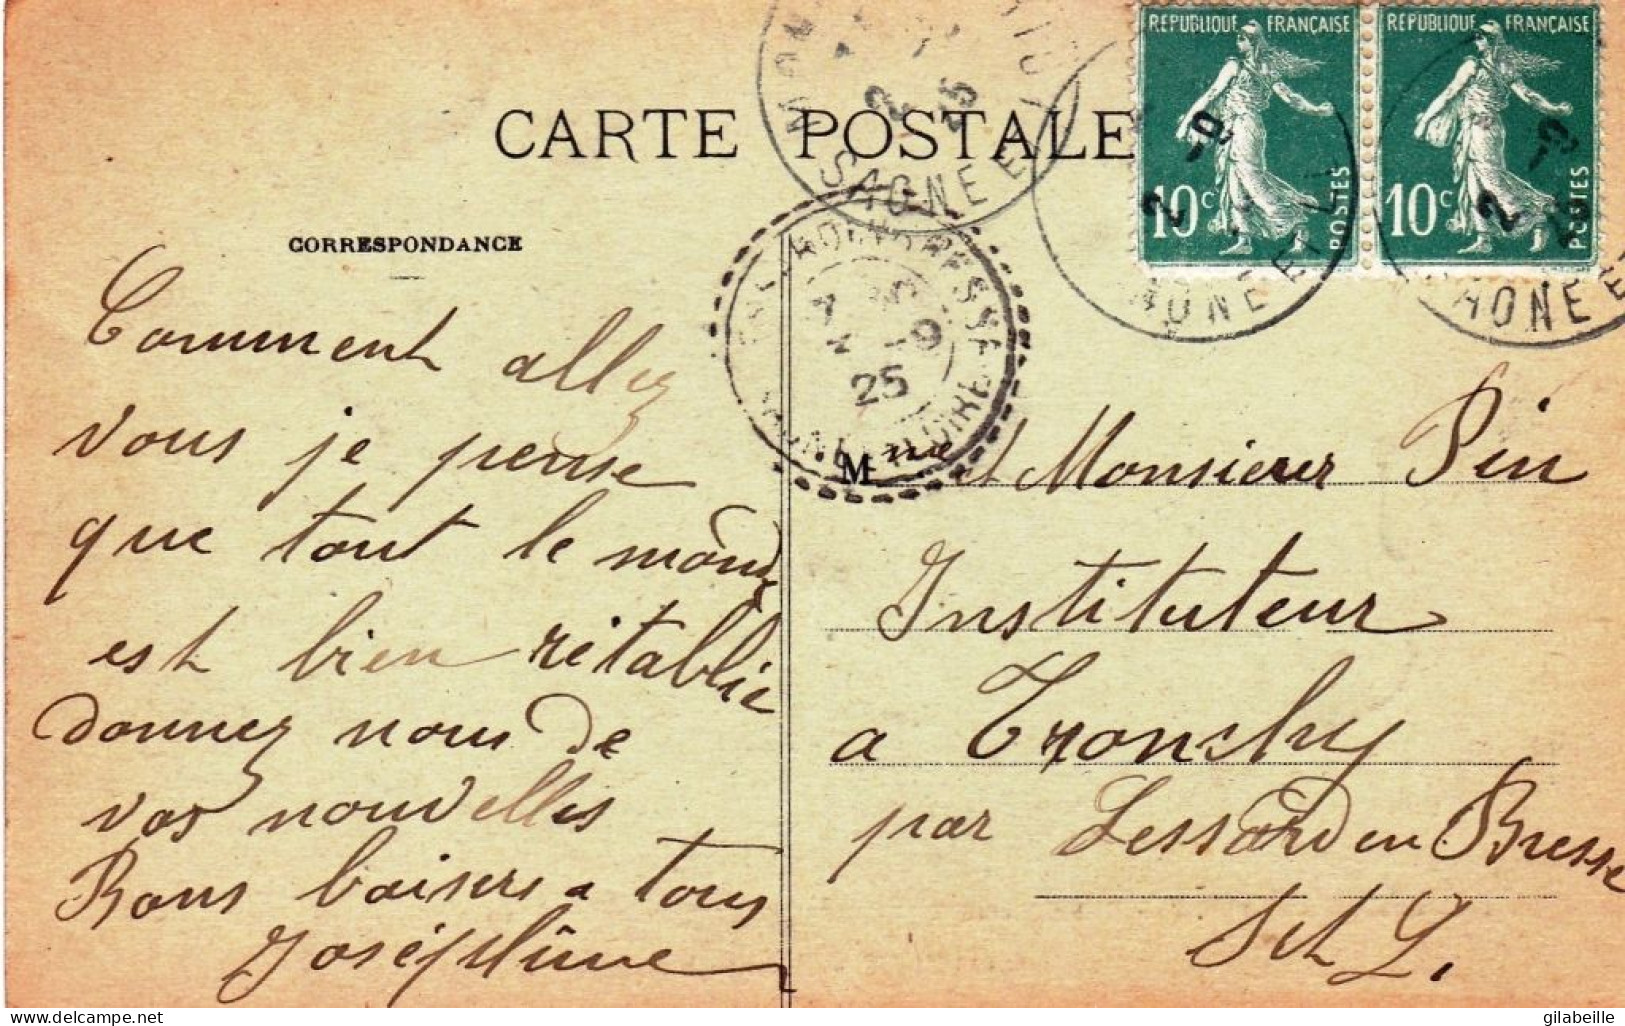 CARTE POSTALE
CORRESPONDANCE
REPUBLIQUE FRANÇAISE
10c
POSTES
REPUBLIQUE FRANÇAISE
10c
POSTES
SAONE ET
25
Comment allez
vous je pense
que tout le monde
est bien rétablie
donnez nous de
vos nouvelles
Bons baisers a tous
Joséphine
Mme et Monsieur Pin
Instituteur
a Tronchy
par Lessard en Bresse
S et L.
delcampe.net
gilabeille